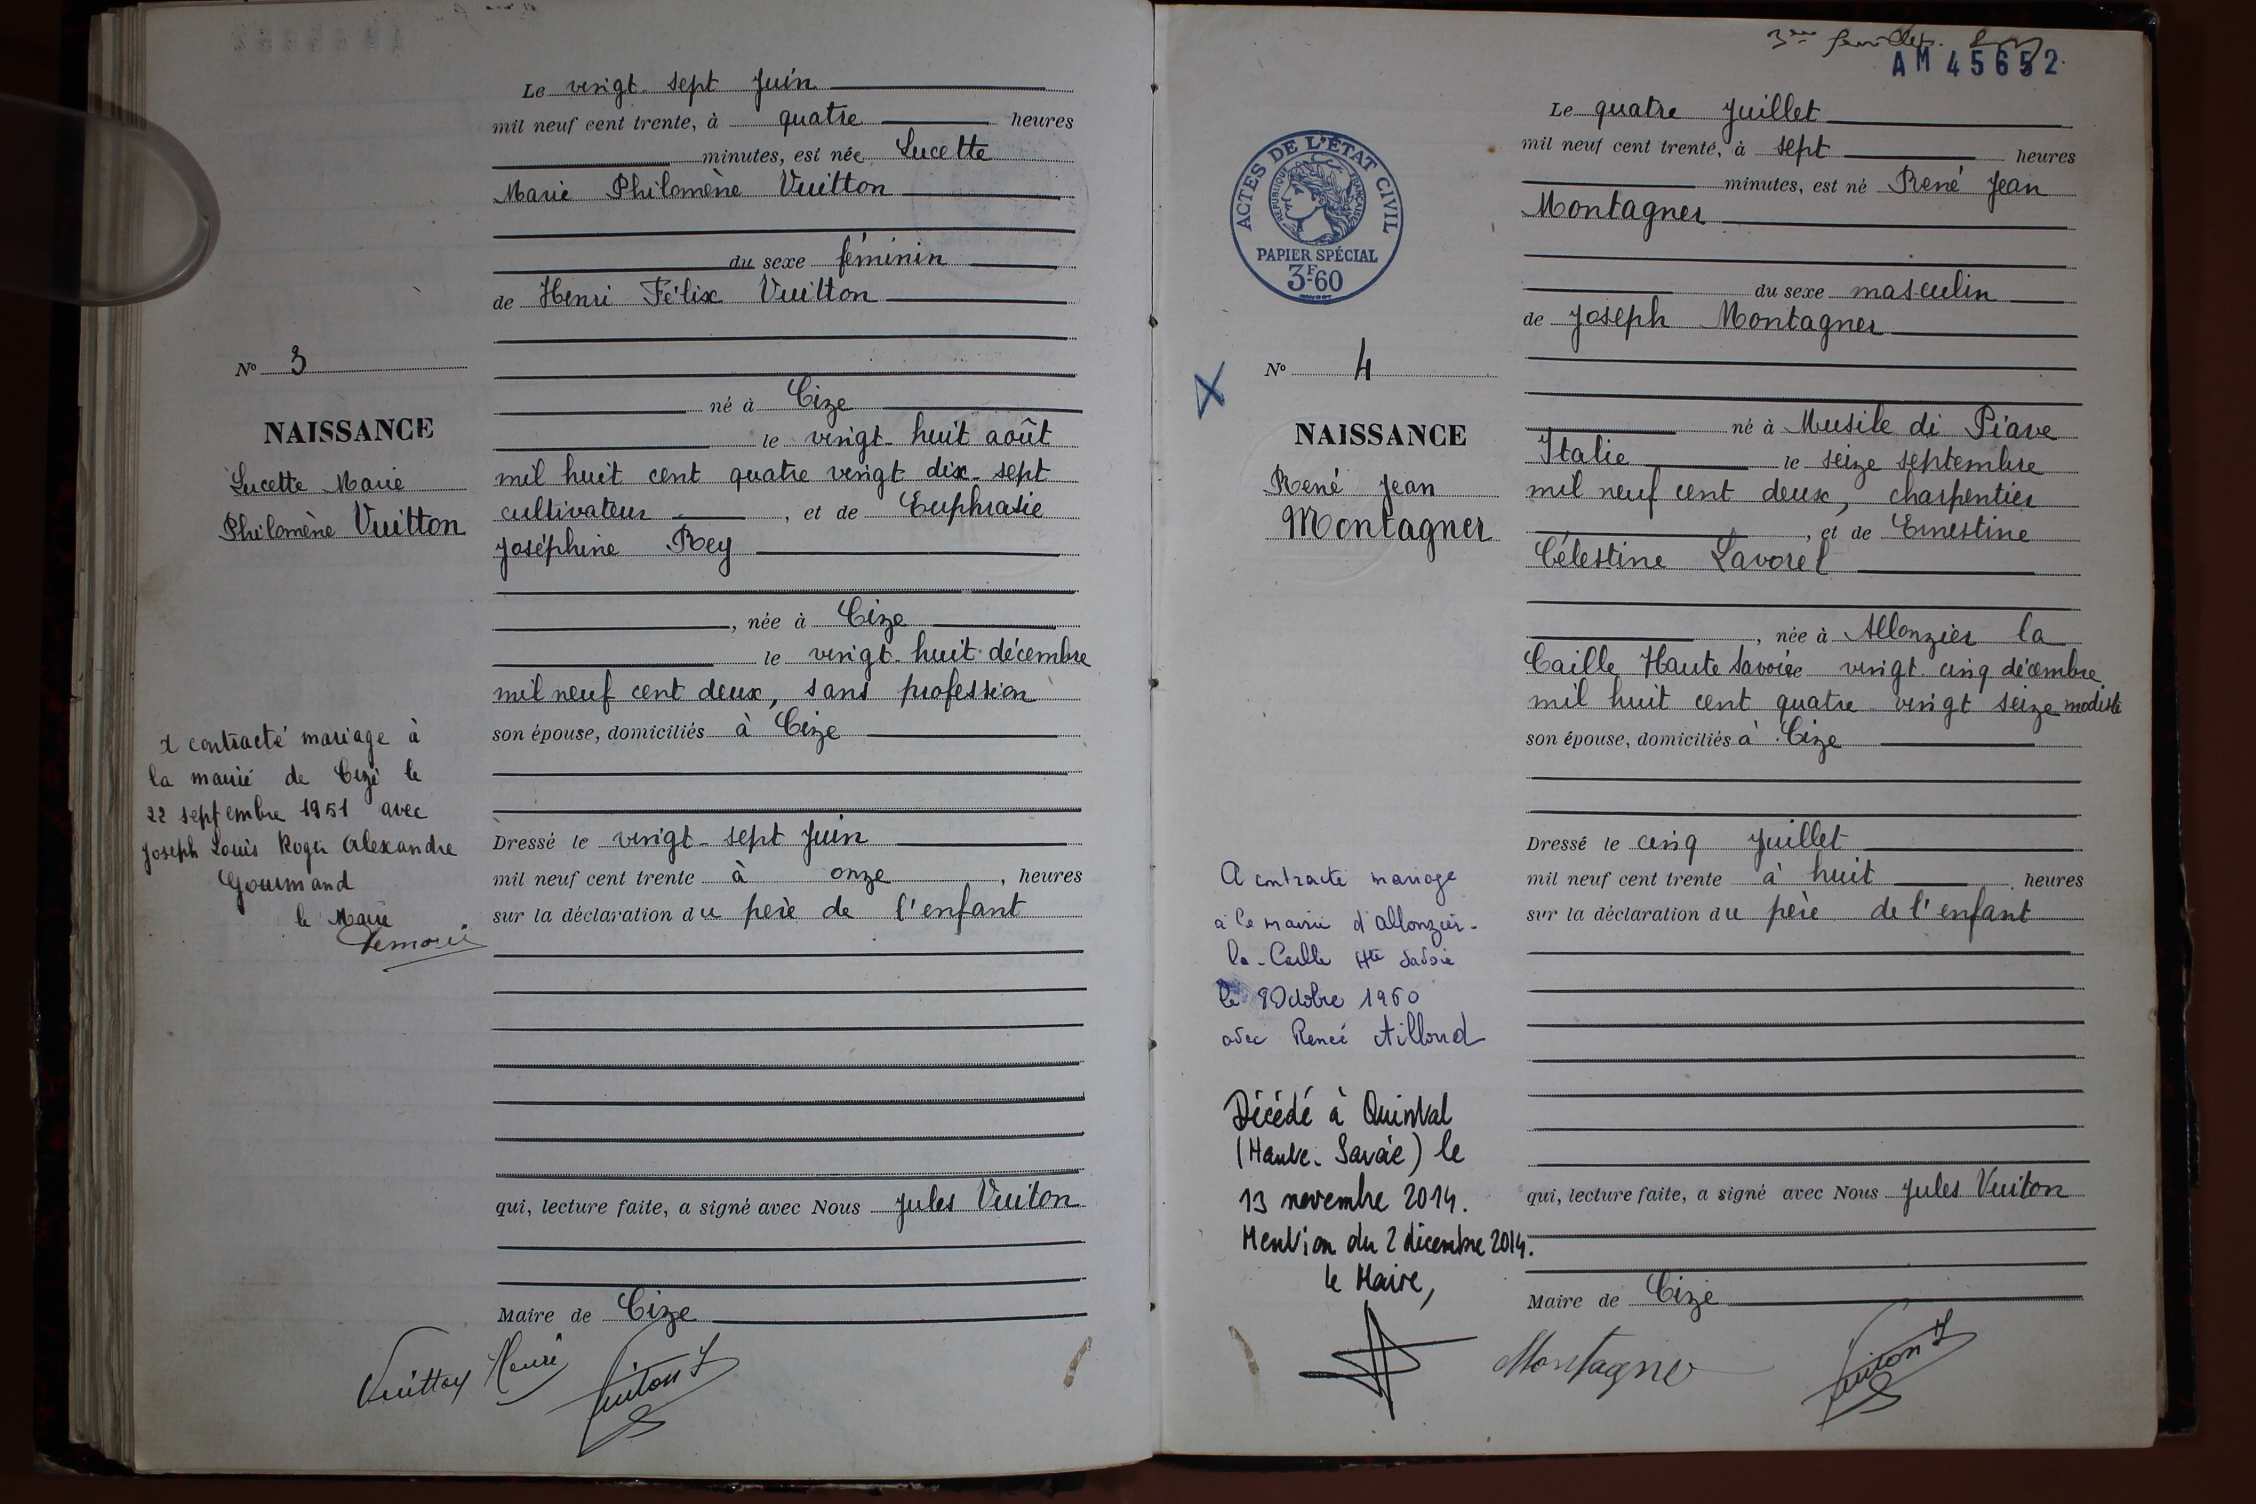 Le vingt-sept Juin
mil neuf cent trente, à quatre heures
minutes, est née Lucette
Marie Philomène Vuitton
du sexe féminin
de Henri Félix Vuitton
né à Cize
le vingt-huit août
mil huit cent quatre vingt dix-sept
cultivateur, et de Euphrasie
Joséphine Rey
, née à Cize
le vingt-huit décembre
mil neuf cent deux, sans profession
son épouse, domiciliés à Cize
Dressé le vingt-sept Juin
mil neuf cent trente à onze, heures
sur la déclaration du père de l'enfant
qui, lecture faite, a signé avec Nous Jules Vuiton
Maire de Cize
Vuitton Henri
Vuiton J
No 3
NAISSANCE
Lucette Marie
Philomène Vuitton
A contracté mariage à
la mairie de Cize le
22 septembre 1951 avec
Joseph Louis Roger Alexandre
Gourmand
le Maire
3me feuillet.
AM 45652
ACTES DE L'ÉTAT CIVIL
RÉPUBLIQUE FRANÇAISE
PAPIER SPÉCIAL
3F60
Le quatre Juillet
mil neuf cent trente, à sept heures
minutes, est né René Jean
Montagner
du sexe masculin
de Joseph Montagner
né à Musile di Piave
Italie le seize septembre
mil neuf cent deux, charpentier
, et de Ernestine
Célestine Lavorel
, née à Allonzier la
Caille Haute Savoie vingt-cinq décembre
mil huit cent quatre vingt seize modiste
son épouse, domiciliés à Cize
Dressé le cinq Juillet
mil neuf cent trente à huit heures
sur la déclaration du père de l'enfant
qui, lecture faite, a signé avec Nous Jules Vuiton
Maire de Cize
Montagner
Vuiton J
No 4
NAISSANCE
René Jean
Montagner
A contracté mariage
à la mairie d'Allonzier-
la-Caille Hte Savoie
le 8 Octobre 1960
avec Renée Ailloud
Décédé à Quintal
(Haute-Savoie) le
13 novembre 2014.
Mention du 2 décembre 2014.
le Maire,